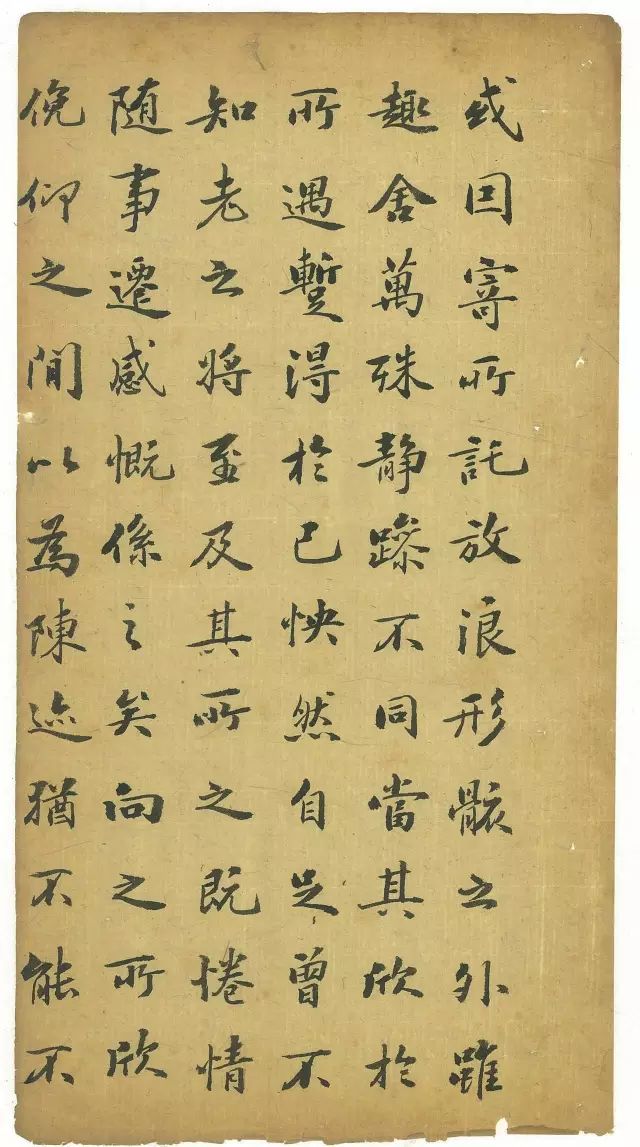 或因寄所託放浪形骸之外雖
趣舍萬殊静躁不同當其欣於
所遇暫得於己怏然自足曾不
知老之將至及其所之既惓情
随事遷感慨係之矣向之所欣
俛仰之閒以為陳迹猶不能不